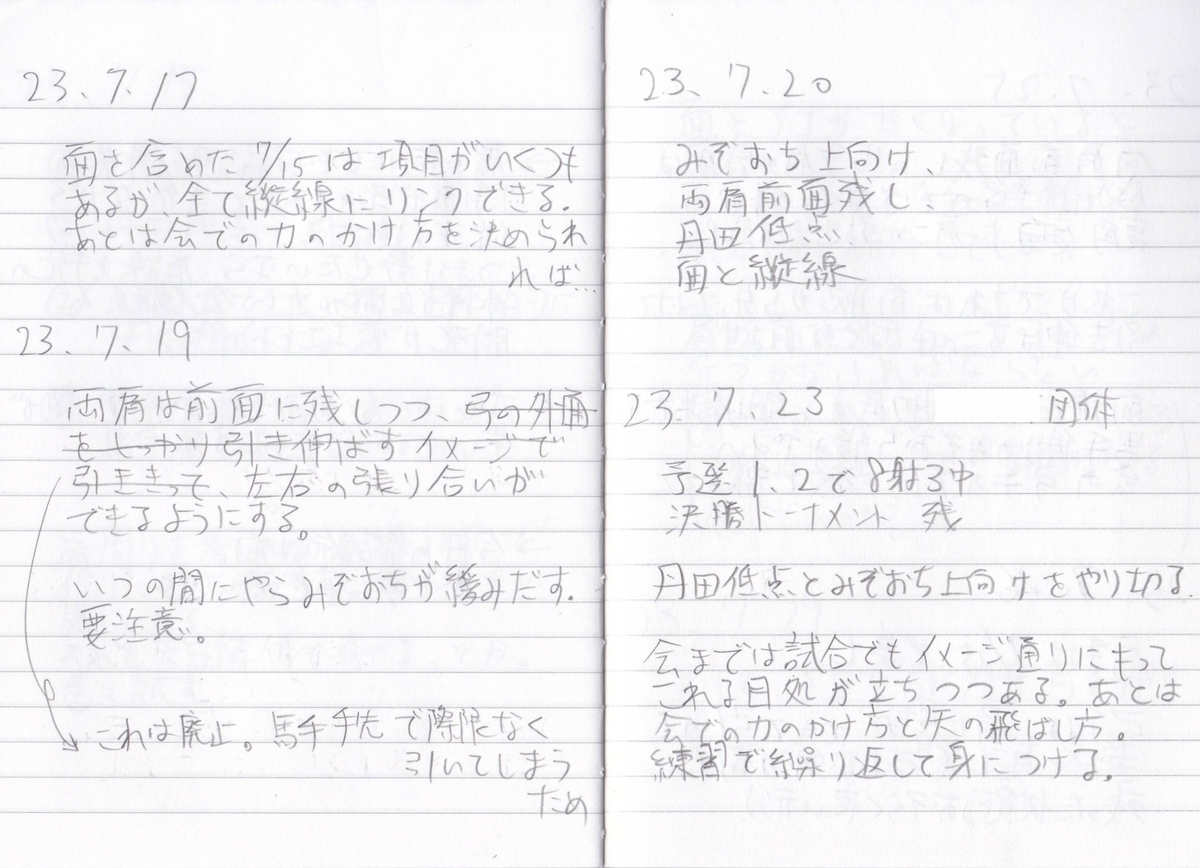 23.7.17
面を含めた 7/15は 項目がいくつも
あるが、全て縦線にリンクできる.
あとは会での力のかけ方を決められ
れば…
23.7.19
両肩は前面に残しつつ、弓の外面
をしっかり引き伸ばすイメージで
引ききって、左右の張り合いが
できるようにする。
いつの間にやらみぞおちが緩みだす.
要注意。
これは廃止。馬手手先で際限なく
引いてしまう
ため
23、7.20
みぞおち上向け、
両肩前面残し、
丹田低点
面と縦線
23.7.23 団体
予選1、2で8射3中
決勝トーナメント 残
丹田低点とみぞおち上向けをやり切る.
会までは試合でもイメージ通りにもって
これる目処が立ちつつある。あとは
会での力のかけ方と矢の飛ばし方。
練習で繰り返して身につける.